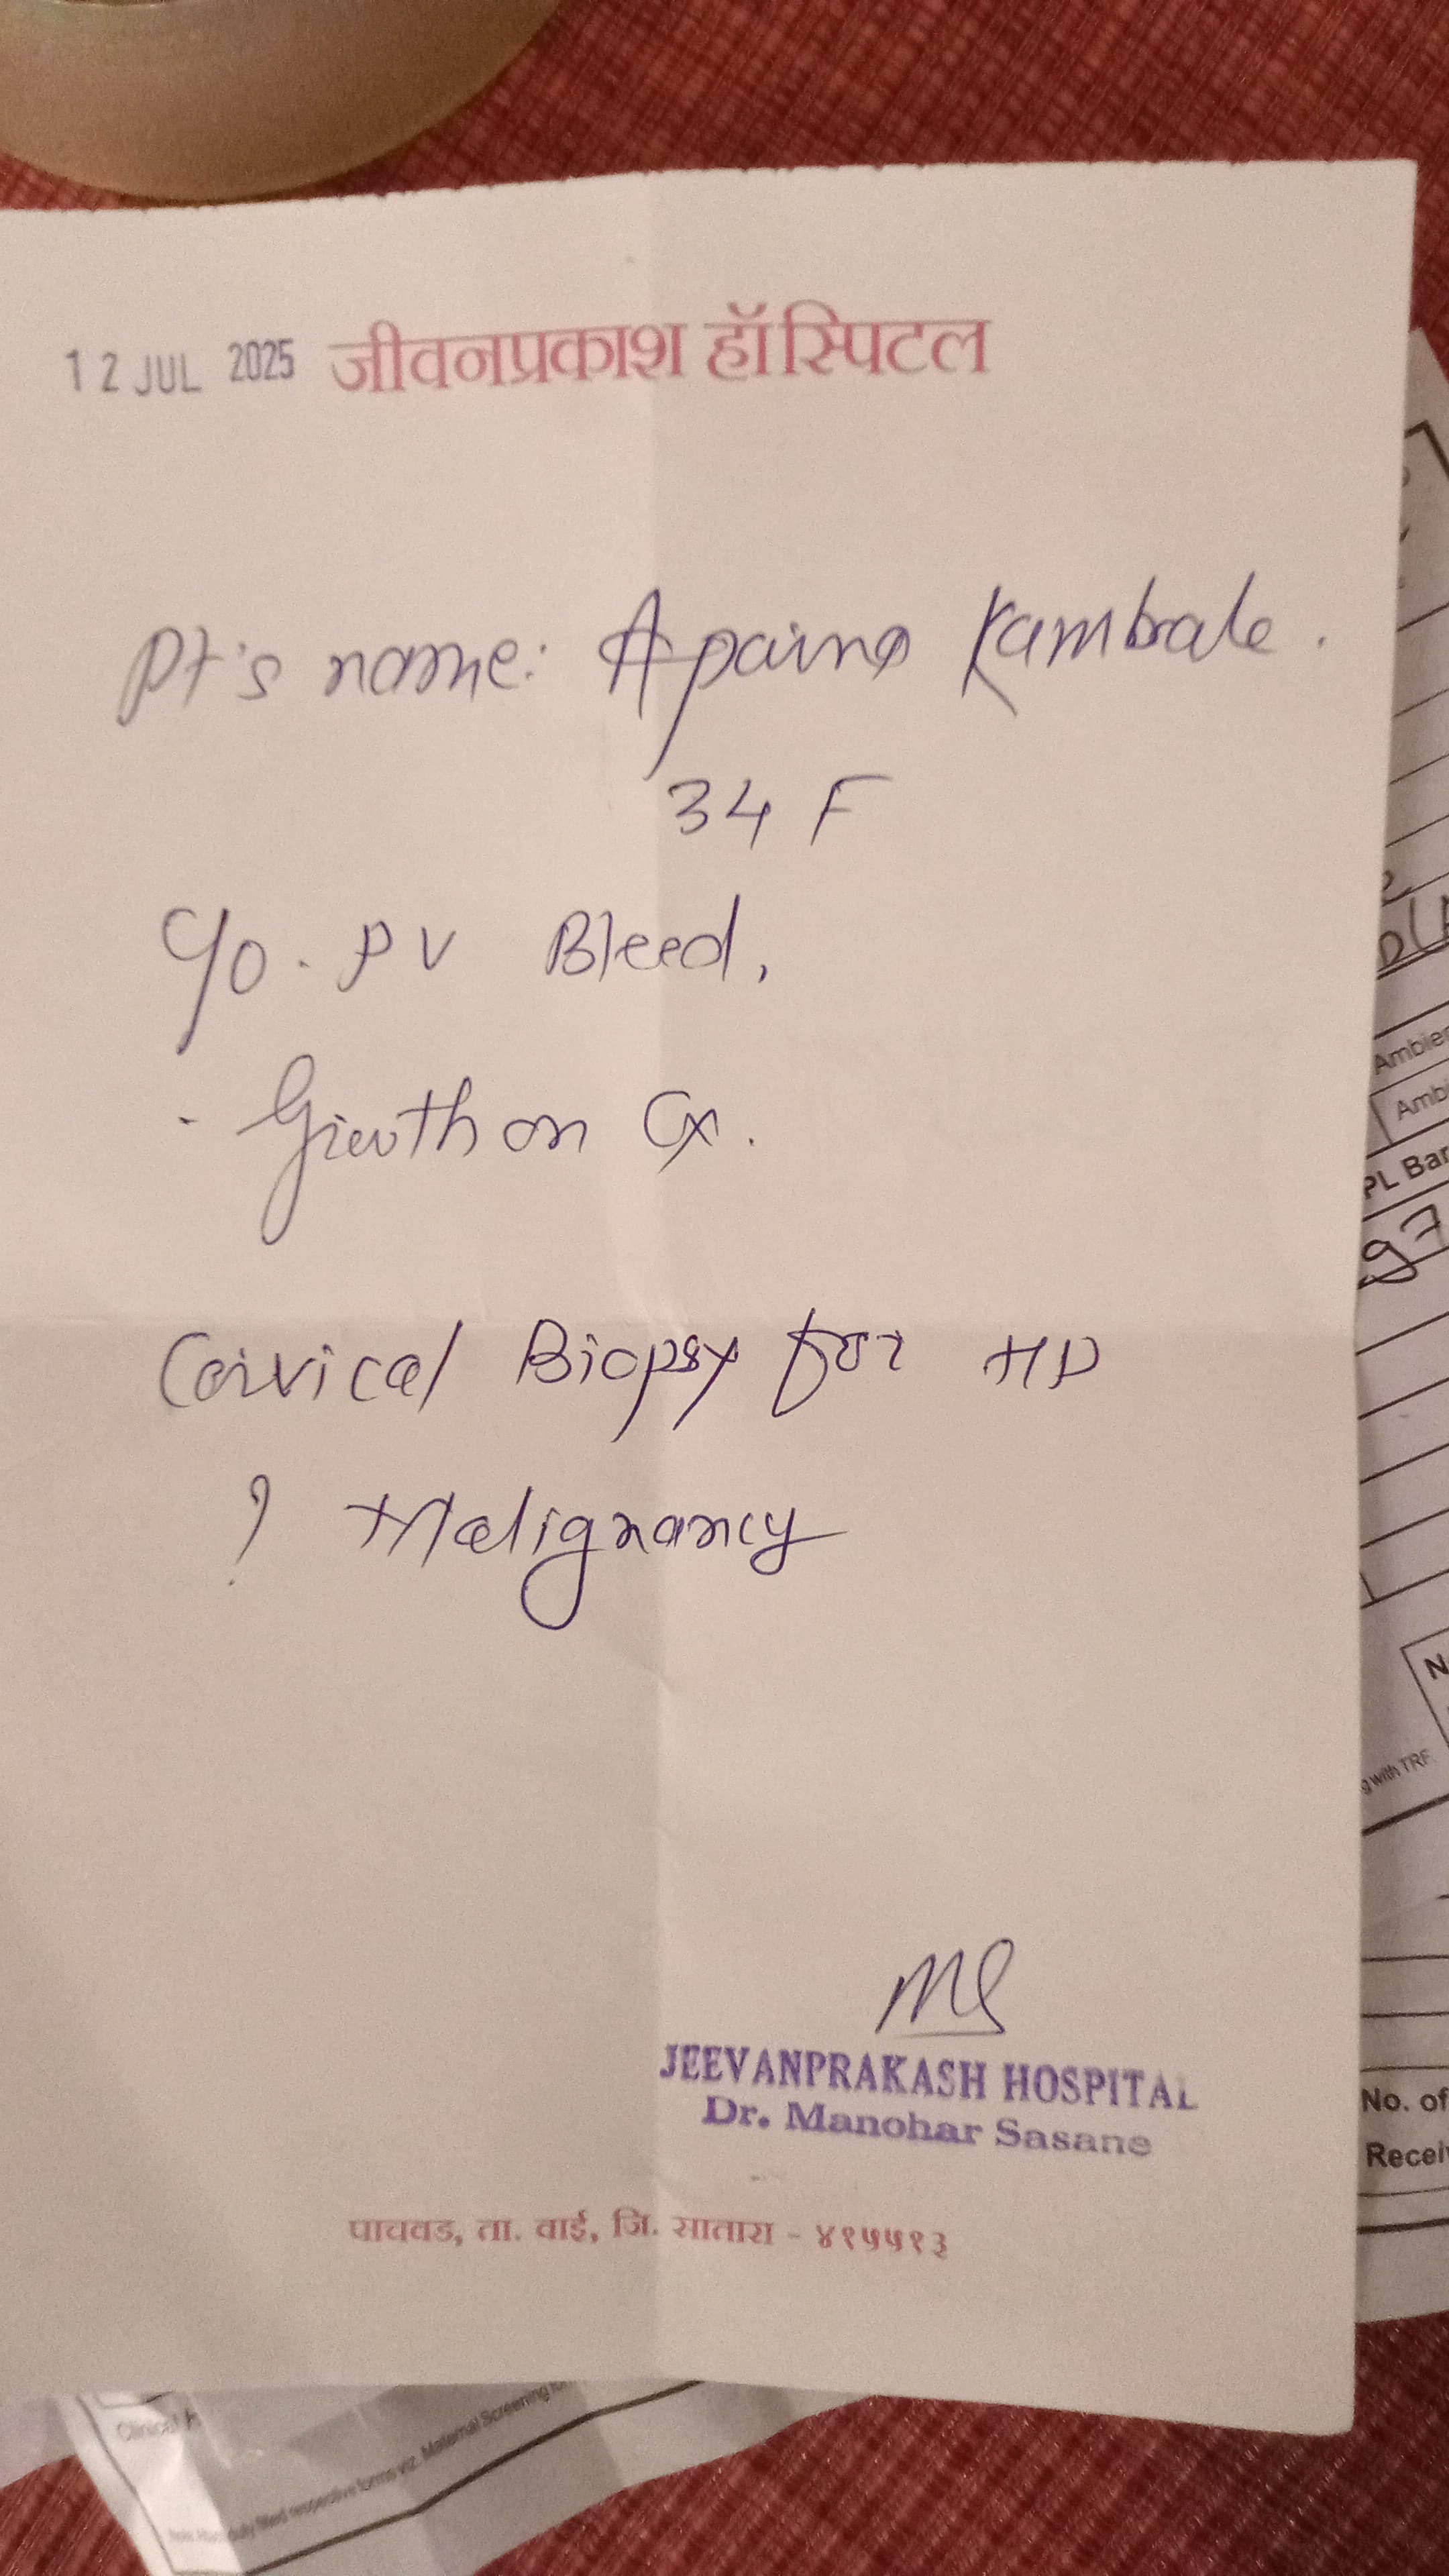 12 JUL 2025 जीवनप्रकाश हॉस्पिटल
Pt's name: Aparna Kambale.
34 F
C/o. PV Bleed,
- Growth on Cx.
Cervical Biopsy for HP
? Malignancy
JEEVANPRAKASH HOSPITAL
Dr. Manohar Sasane
पाचवड, ता. वाई, जि. सातारा - ४१५५१३
Ambie
Amb
PL Bar
97
N
g with TRF.
No. of
Recei
Clinical H
duly filled respective forms viz. Maternal Screening fo